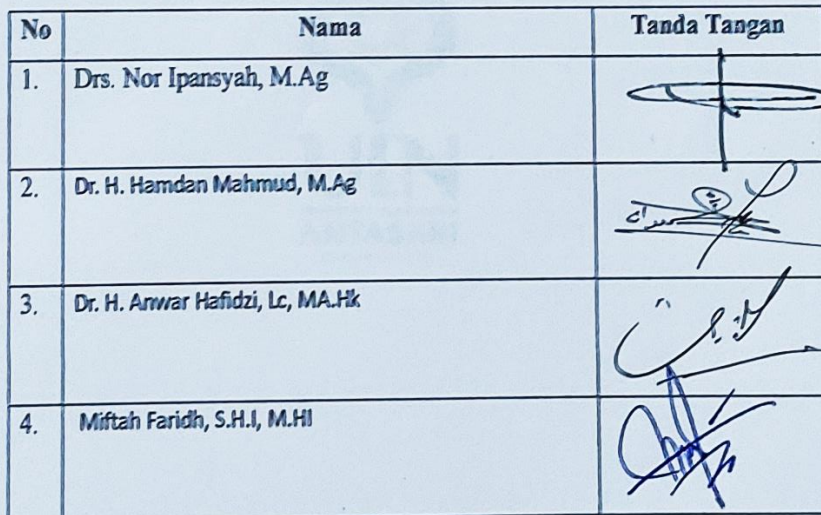 No Nama Tanda Tangan
1. Drs. Nor Ipansyah, M.Ag
2. Dr. H. Hamdan Mahmud, M.Ag
3. Dr. H. Anwar Hafidzi, Lc, MA.Hk
4. Miftah Faridh, S.H.I, M.HI